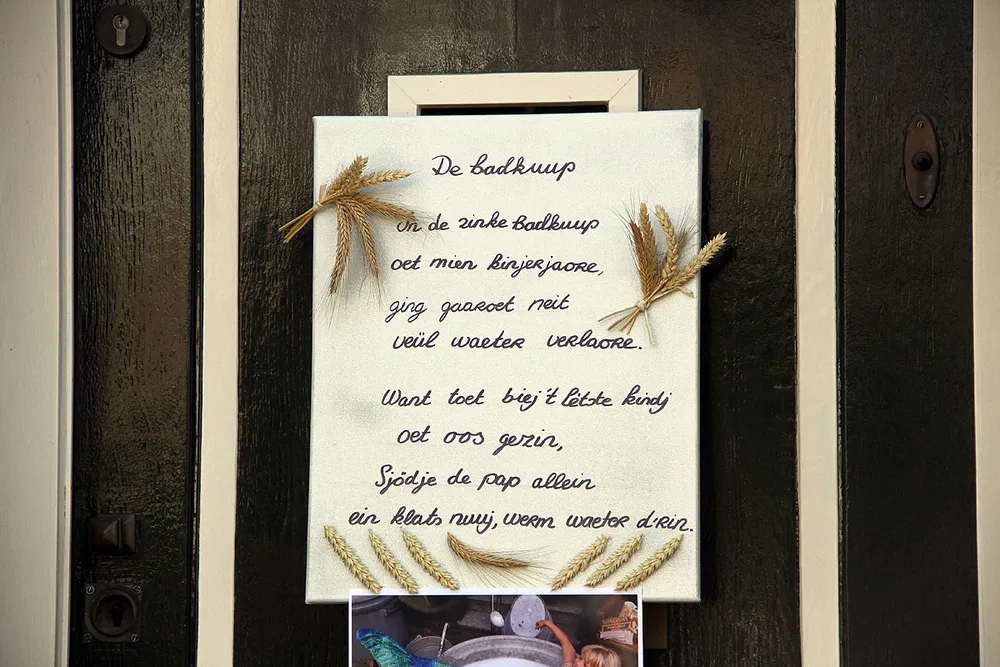 De badkuup
In de zinke Badkuup
oet mien kinjerjaore,
ging gaaroet neit
veül waeter verlaore.
Want toet biej 't létste kindj
oet oos gezin,
Sjödje de pap allein
ein klats nuuj, werm waeter d'rin.